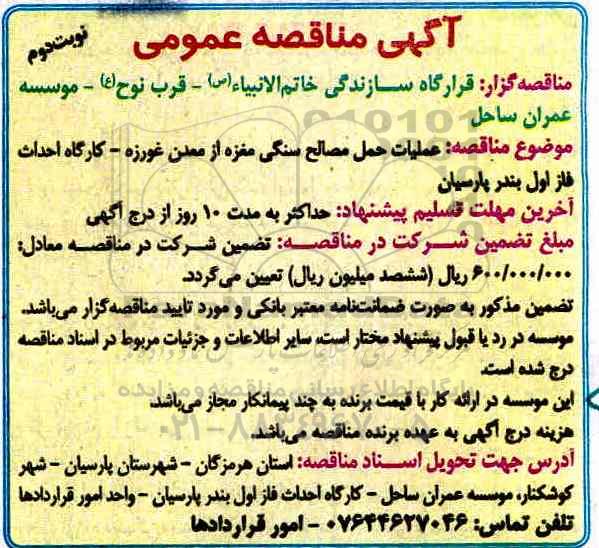 آگهی مناقصه عمومی
نوبت دوم
مناقصه‌گزار: قرارگاه سازندگی خاتم‌الانبیاء(ص) - قرب نوح(ع) - موسسه
عمران ساحل
موضوع مناقصه: عملیات حمل مصالح سنگی مغزه از معدن غورزه - کارگاه احداث
فاز اول بندر پارسیان
آخرین مهلت تسلیم پیشنهاد: حداکثر به مدت ۱۰ روز از درج آگهی
مبلغ تضمین شرکت در مناقصه: تضمین شرکت در مناقصه معادل:
۶۰۰/۰۰۰/۰۰۰ ریال (ششصد میلیون ریال) تعیین می‌گردد.
تضمین مذکور به صورت ضمانت‌نامه معتبر بانکی و مورد تایید مناقصه‌گزار می‌باشد.
موسسه در رد یا قبول پیشنهاد مختار است، سایر اطلاعات و جزئیات مربوط در اسناد مناقصه
درج شده است.
این موسسه در ارائه کار با قیمت برنده به چند پیمانکار مجاز می‌باشد.
هزینه درج آگهی به عهده برنده مناقصه می‌باشد.
آدرس جهت تحویل اسناد مناقصه: استان هرمزگان - شهرستان پارسیان - شهر
کوشکنار، موسسه عمران ساحل - کارگاه احداث فاز اول بندر پارسیان - واحد امور قراردادها
تلفن تماس: ۰۷۶۴۴۶۲۷۰۴۶ - امور قراردادها
پایگاه اطلاع رسانی مناقصه و مزایده